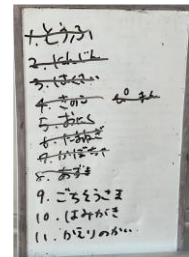 1. とうふ
2. にんじん
3. はくさい
4. きのこ ピーマン
5. おにく
6. たまねぎ
7. かぼちゃ
8. あずき
9. ごちそうさま
10. はみがき
11. かえりのかい